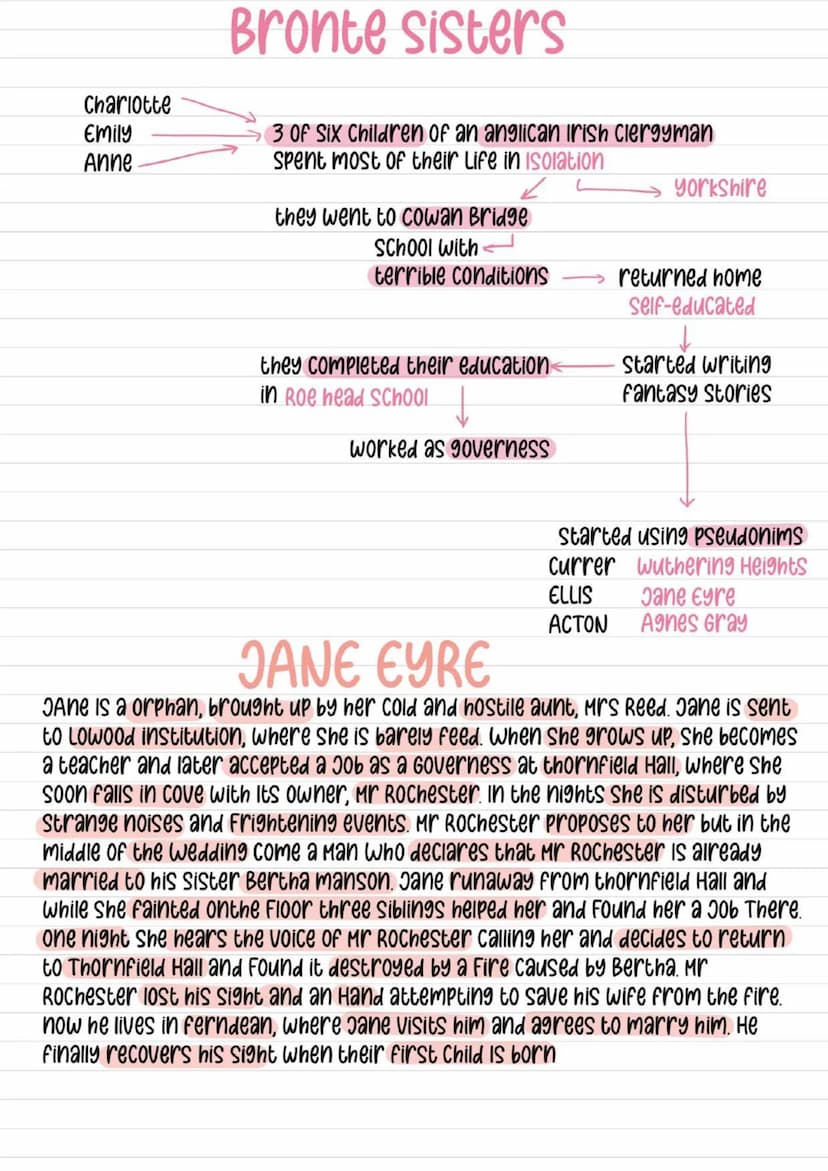 Bronte Sisters
Charlotte
Emily
Anne
3 of six children of an anglican Irish Clergyman
spent most of their life in Isolation
Yorkshire
they went to Cowan Bridge
school with
terrible conditions
returned home
self-educated
they completed their education
in Roe head School
started writing
fantasy stories
worked as governess
started using pseudonims
Currer Wuthering Heights
ELLIS Jane Eyre
ACTON Agnes Gray
JANE EYRE
JAne is a orphan, brought up by her cold and hostile aunt, Mrs Reed. Jane is sent
to Lowood institution, where she is barely feed. When she grows up, she becomes
a teacher and later accepted a Job as a Governess at thornfield Hall, where she
soon falls in cove with its owner, Mr Rochester. In the nights she is disturbed by
strange noises and frightening events. Mr Rochester proposes to her but in the
middle of the wedding come a Man who declares that Mr Rochester is already
married to his sister Bertha manson. Jane runaway from thornfield Hall and
while she fainted onthe floor three siblings helped her and found her a Job There.
One night she hears the voice of Mr Rochester calling her and decides to return
to Thornfield Hall and found it destroyed by a fire caused by Bertha. Mr
Rochester lost his sight and an Hand attempting to save his wife from the fire.
now he lives in ferndean, where Jane visits him and agrees to marry him. He
finally recovers his sight when their first child is born